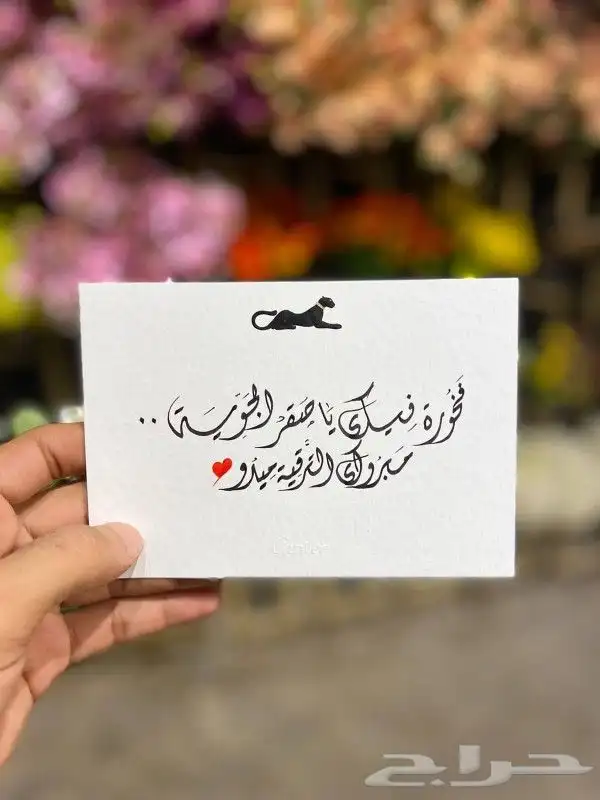 فَخُورة فِيك يَا صَقر الجَوِّية ..
مَبرُوك الترْقِية مِيدُو
Cartier
حراج